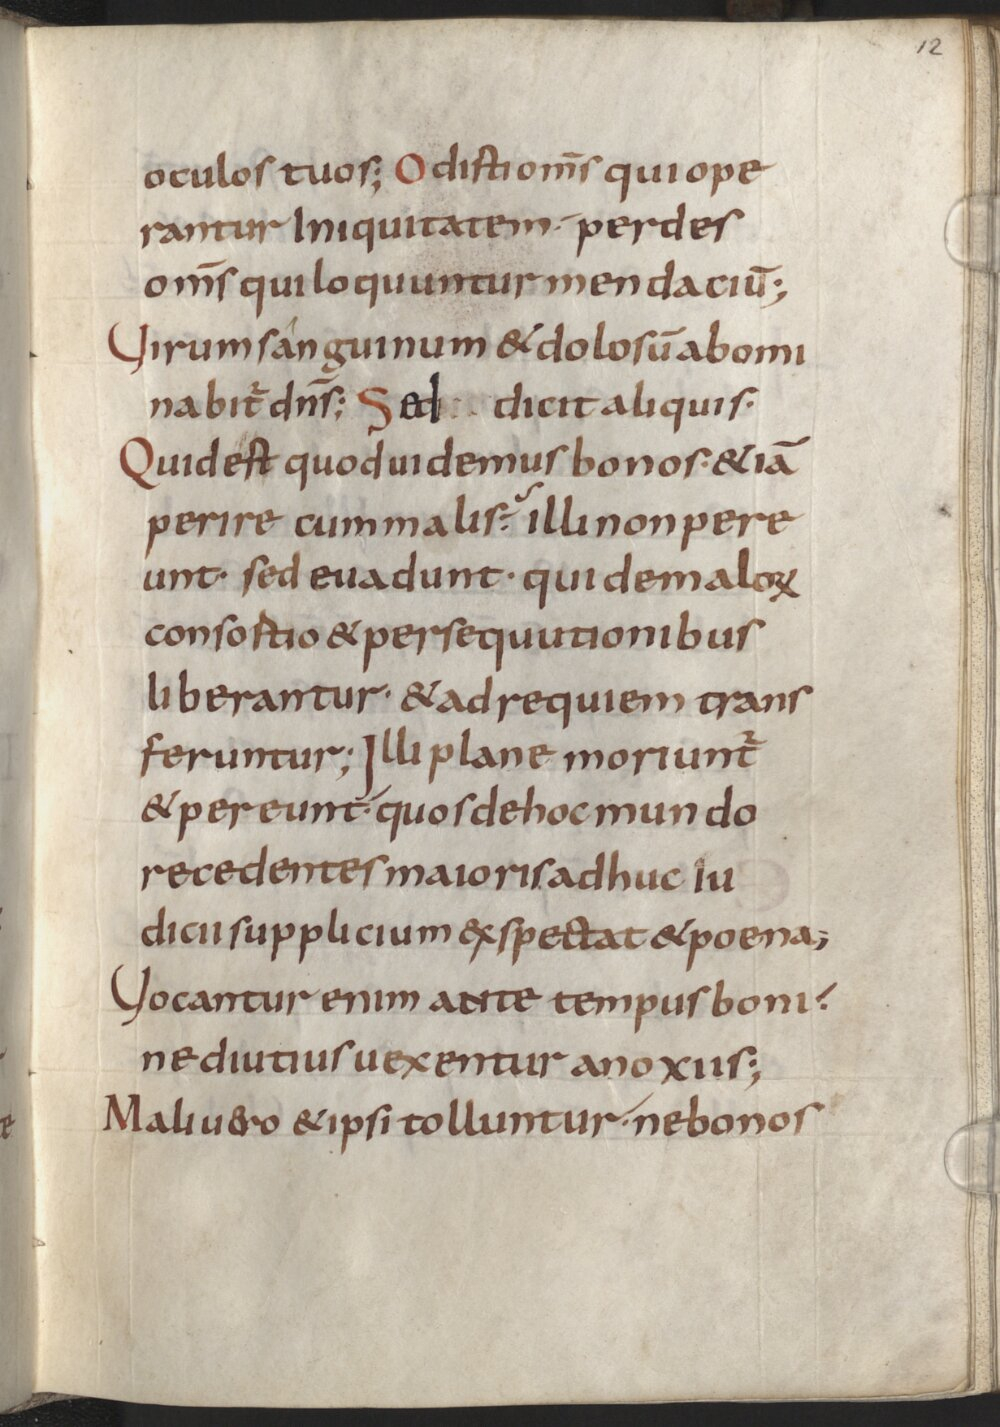 12
oculos tuos; Odisti om̄s qui ope
rantur Iniquitatem· perdes
om̄s qui loquuntur mendaciū;
Uirum sanguinum & dolosū abomi
nabit̄ dn̄s; Sed dicit aliquis·
Quid est quod uidemus bonos· & iā
perire cum malis? illi non pere
unt· sed euadunt· qui de maloꝝ
consostio & persequutionibus
liberantur· & ad requiem trans
feruntur; Illi plane moriunt̄
& pereunt· quos de hoc mundo
recedentes maioris adhuc Iu
dicii supplicium exspectat & poena;
Uocantur enim ante tempus boni·
ne diutius uexentur a noxiis;
Mali uero & ipsi tolluntur· ne bonos